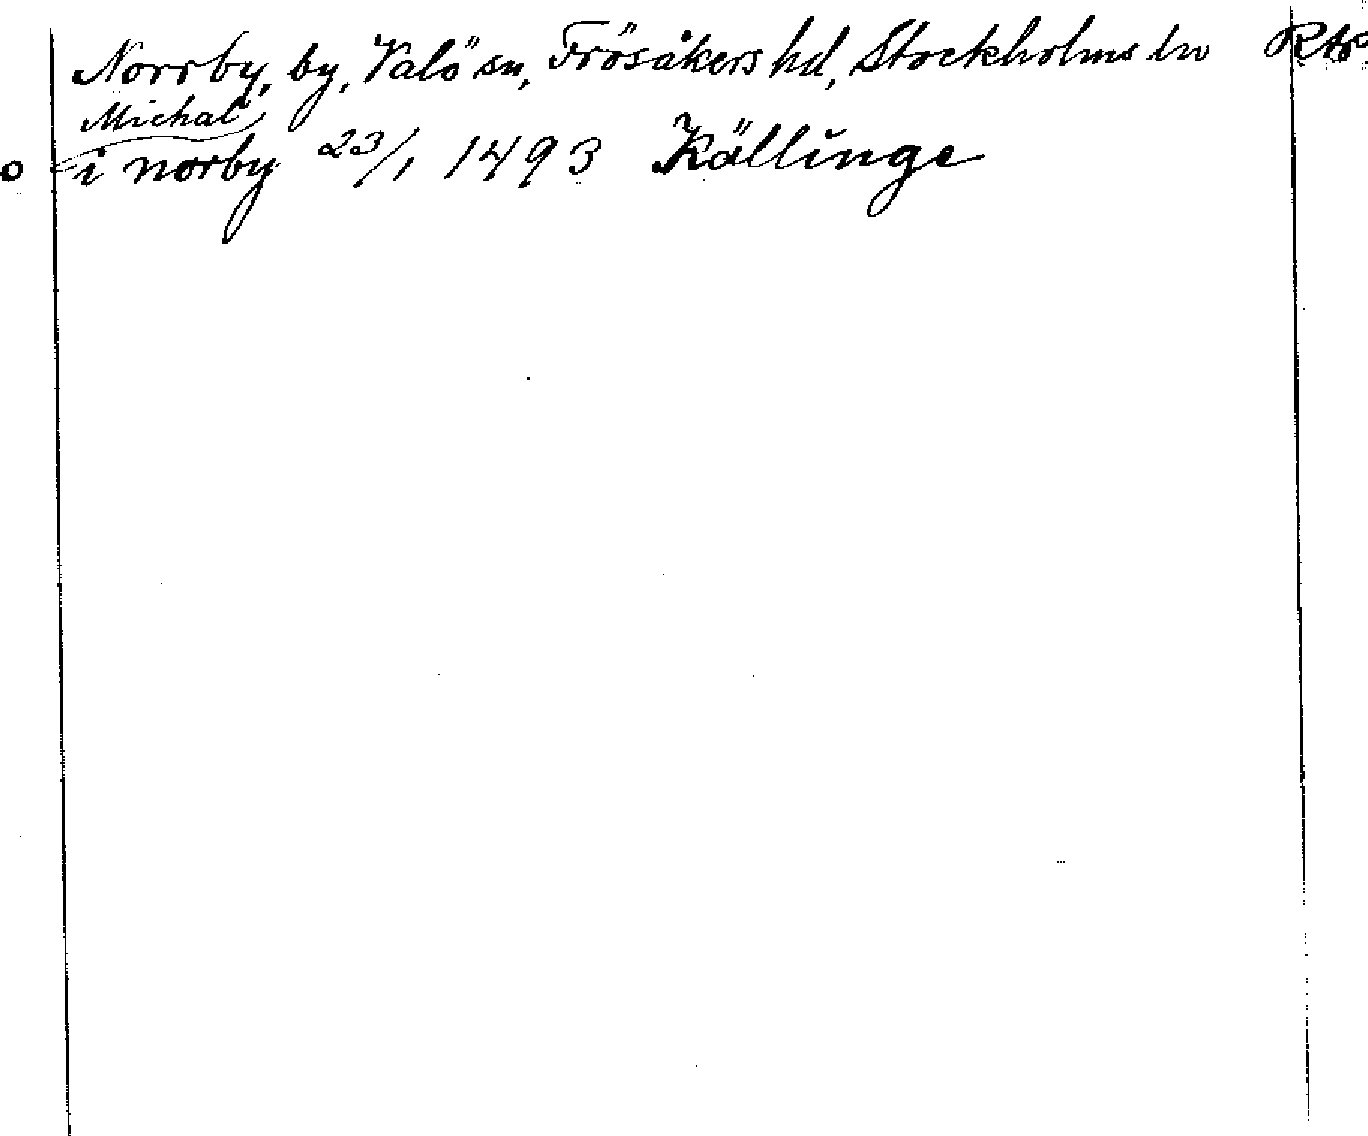 Norrby, by, Valö sn, Frösåkers hd, Stockholms ln
Michal
o i norby 23/1 1493 Källinge